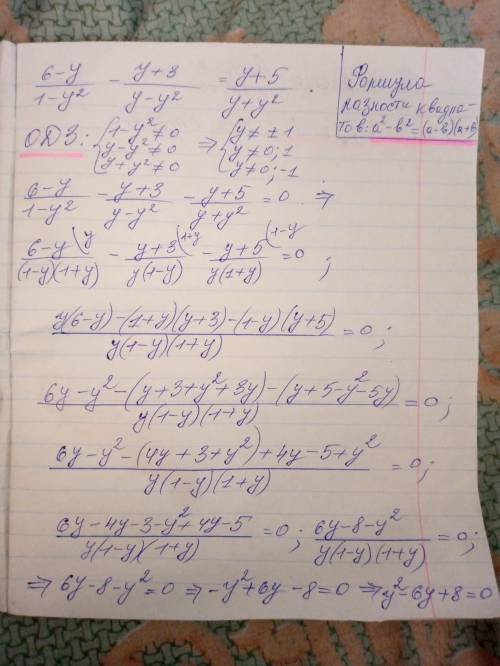 (6-y)/(1-y²) - (y+3)/(y-y²) = (y+5)/(y+y²) .
Формула
разности квадра-
тов: a²-b²=(a-b)(a+b)
ОДЗ: {1-y²≠0 ⇒ {y≠±1
{y-y²≠0 {y≠0;1
{y+y²≠0 {y≠0;-1
(6-y)/(1-y²) - (y+3)/(y-y²) - (y+5)/(y+y²) = 0 . ⇒
(6-y\y)/((1-y)(1+y)) - (y+3\1+y)/(y(1-y)) - (y+5\1-y)/(y(1+y)) = 0 ;
(y(6-y)-(1+y)(y+3)-(1-y)(y+5))/(y(1-y)(1+y)) = 0 ;
(6y-y²-(y+3+y²+3y)-(y+5-y²-5y))/(y(1-y)(1+y)) = 0 ;
(6y-y²-(4y+3+y²)+4y-5+y²)/(y(1-y)(1+y)) = 0 ;
(6y-4y-3-y²+4y-5)/(y(1-y)(1+y)) = 0 ; (6y-8-y²)/(y(1-y)(1+y)) = 0 ;
⇒ 6y-8-y²=0 ⇒ -y²+6y-8=0 ⇒ y²-6y+8=0